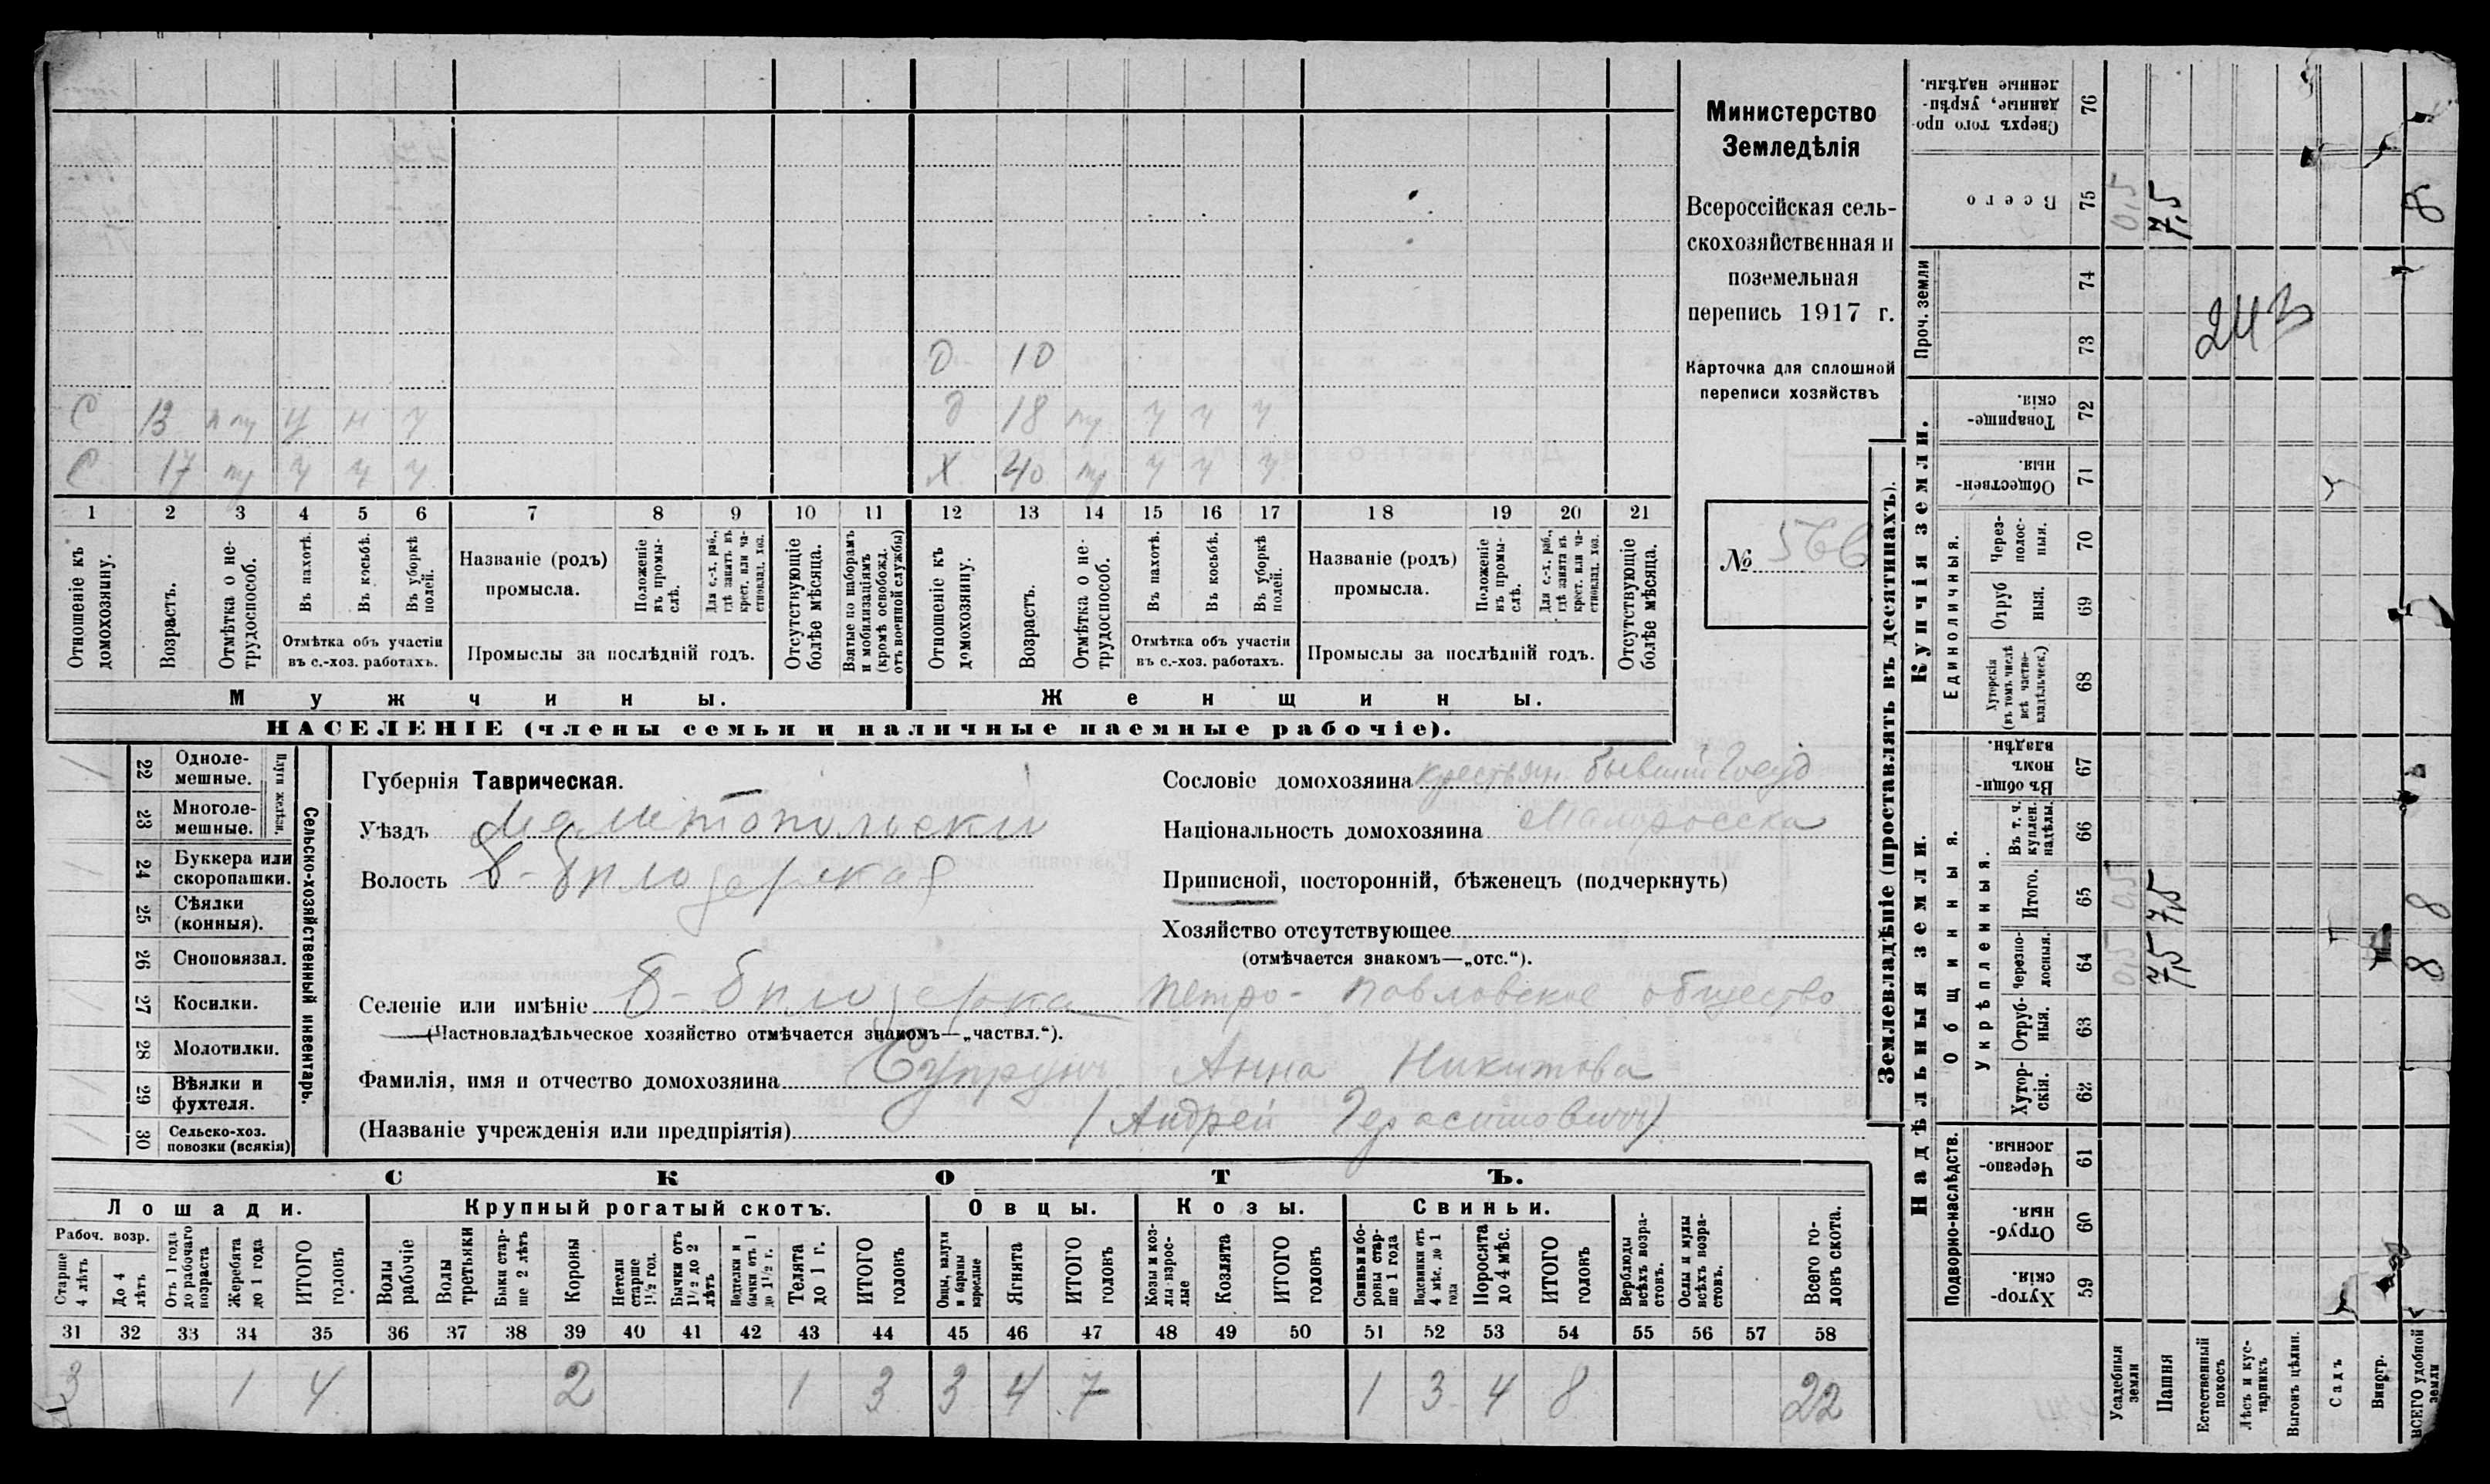 Министерство
Земледѣлія
Всероссійская сель-
скохозяйственная и
поземельная
перепись 1917 г.
Карточка для сплошной
переписи хозяйствъ
№ 566
О 10
С 13 п пу ч н ч
д 18 пу ч ч ч
С 17 пу ч ч ч
Х 40 пу ч ч ч
1 2 3 4 5 6 7 8 9 10 11 12 13 14 15 16 17 18 19 20 21
Отношеніе къ домохозяину.
Возрастъ.
Отмѣтка о не-трудоспособ.
Въ пахотѣ.
Въ косьбѣ.
Въ уборкѣ полей.
Отмѣтка объ участіи
въ с.-хоз. работахъ.
Названіе (родъ)
промысла.
Положеніе въ промы-слѣ.
Для с.-х. раб., гдѣ занятъ въ крест. или ча-стновлад. хоз.
Промыслы за послѣдній годъ.
Отсутствующіе болѣе мѣсяца.
Взятые по наборамъ и мобилизаціямъ (кромѣ освобожд. отъ военной службы)
Отношеніе къ домохозяину.
Возрастъ.
Отмѣтка о не-трудоспособ.
Въ пахотѣ.
Въ косьбѣ.
Въ уборкѣ полей.
Отмѣтка объ участіи
въ с.-хоз. работахъ.
Названіе (родъ)
промысла.
Положеніе въ промы-слѣ.
Для с.-х. раб., гдѣ занята въ крест. или ча-стновлад. хоз.
Промыслы за послѣдній годъ.
Отсутствующіе болѣе мѣсяца.
Мужчины.
Женщины.
НАСЕЛЕНІЕ (члены семьи и наличные наемные рабочіе).
22 Одноле-мешные.
23 Многоле-мешные.
Плуги желѣзн.
24 Буккера или скоропашки.
25 Сѣялки (конныя).
26 Сноповязал.
27 Косилки.
28 Молотилки.
29 Вѣялки и фухтеля.
30 Сельско-хоз. повозки (всякія)
Сельско-хозяйственный инвентарь.
Губернія Таврическая.
Уѣздъ Мелитопольскій
Волость Б-Бѣлозерская
Сословіе домохозяина крестьян. бывший Госуд
Національность домохозяина Малоросска
Приписной, посторонній, бѣженецъ (подчеркнуть)
Хозяйство отсутствующее
(отмѣчается знакомъ—„отс.“).
Селеніе или имѣніе Б-Бѣлозерка Петро-Павловское общество
(Частновладѣльческое хозяйство отмѣчается знакомъ—„частвл.“).
Фамилія, имя и отчество домохозяина Супрунъ Анна Никитова
(Названіе учрежденія или предпріятія) (Андрей Герасимовичъ)
СКОТЪ.
Лошади. Крупный рогатый скотъ. Овцы. Козы. Свиньи.
Рабоч. возр.
Старше 4 лѣтъ
До 4 лѣтъ
Отъ 1 года до рабочаго возраста
Жеребята до 1 года
ИТОГО головъ
Волы рабочіе
Волы третьяки
Быки стар-ше 2 лѣтъ
Коровы
Нетели старше 1½ год.
Бычки отъ 1½ до 2 лѣтъ
Подтелки и бычки отъ 1 до 1½ г.
Телята до 1 г.
ИТОГО головъ
Овцы, валухи и бараны взрослые
Ягнята
ИТОГО головъ
Козы и коз-лы взрос-лые
Козлята
ИТОГО головъ
Свиньи и бо-ровы стар-ше 1 года
Подсвинки отъ 4 мѣс. до 1 года
Поросята до 4 мѣс.
ИТОГО головъ
Верблюды всѣхъ возра-стовъ.
Ослы и мулы всѣхъ возра-стовъ.
Всего го-ловъ скота.
31 32 33 34 35 36 37 38 39 40 41 42 43 44 45 46 47 48 49 50 51 52 53 54 55 56 57 58
3 1 4 2 1 3 3 4 7 1 3 4 8 22
Землевладѣніе (проставлять въ десятинахъ).
Купчія земли.
Надѣльныя земли.
Проч. земли
Сверхъ того про-данные, укрѣп-ленные надѣлы. 76
Всего 75 0,5 7,5 8
74
73
243
Товарище-скія. 72
Обществен-ныя. 71
Единоличныя.
Через-полос-ныя. 70
Отруб ныя. 69
Хуторскія (въ томъ числѣ всѣ частно-владѣльческ.) 68
Общинныя.
Въ общи-номъ владѣн. 67
Укрѣпленныя.
Въ т. ч. куплен. надѣлы. 66
Итого. 65 0,5 7,5 8
Черезпо-лосныя. 64 0,5 7,5 8
Отруб-ныя. 63
Хутор-скія. 62
Подворно-наслѣдств.
Черезпо-лосныя. 61
Отруб-ныя. 60
Хутор-скія. 59
Усадебныя земли
Пашня
Естественный покосъ
Лѣсъ и кус-тарникъ
Выгонъ цѣлин.
Садъ
Виногр.
ВСЕГО удобной земли